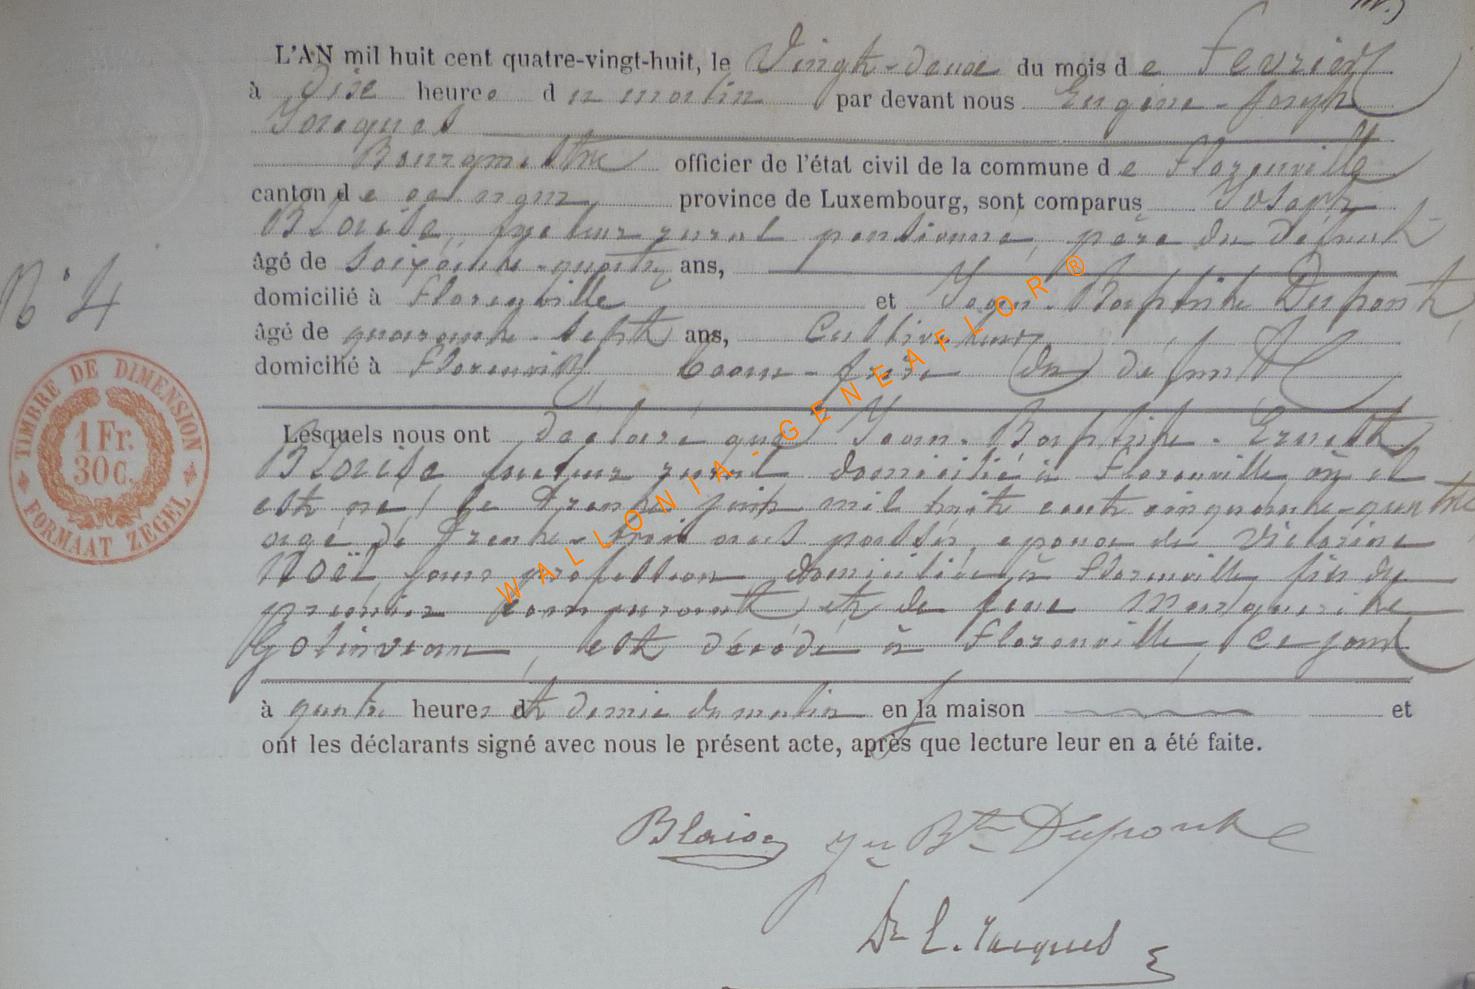 L'AN mil huit cent quatre-vingt-huit, le Vingt-deux du mois de Fevrier
à dix heures du matin par devant nous Eugène-Joseph
Jacques
Bourgmestre officier de l'état civil de la commune de Florenville
canton de ce nom province de Luxembourg, sont comparus Joseph
Blaise, facteur rural pensionné, père du défunt
âgé de soixante-quatre ans,
domicilié à Florenville et Jean-Baptiste Dupont
âgé de quarante-sept ans, Cultivateur
domicilié à Florenville, beau-frère du défunt
N° 4
TIMBRE DE DIMENSION
1 Fr.
30 C.
FORMAAT ZEGEL
Lesquels nous ont déclaré que Jean-Baptiste-Ernest
Blaise facteur rural domicilié à Florenville où il
est né, le trente juin mil huit cent cinquante-quatre
agé de trente-trois ans passés, epoux de Victorine
Noël, sans profession domiciliée à Florenville fils du
premier comparant et de feue Marguerite
Golinvaux, est décédé à Florenville, ce jour
à quatre heures et demie du matin en sa maison et
ont les déclarants signé avec nous le présent acte, après que lecture leur en a été faite.
WALLONIA-GENEAFLOR®
Blaise Jn Bte Dupont
Dr E. Jacques